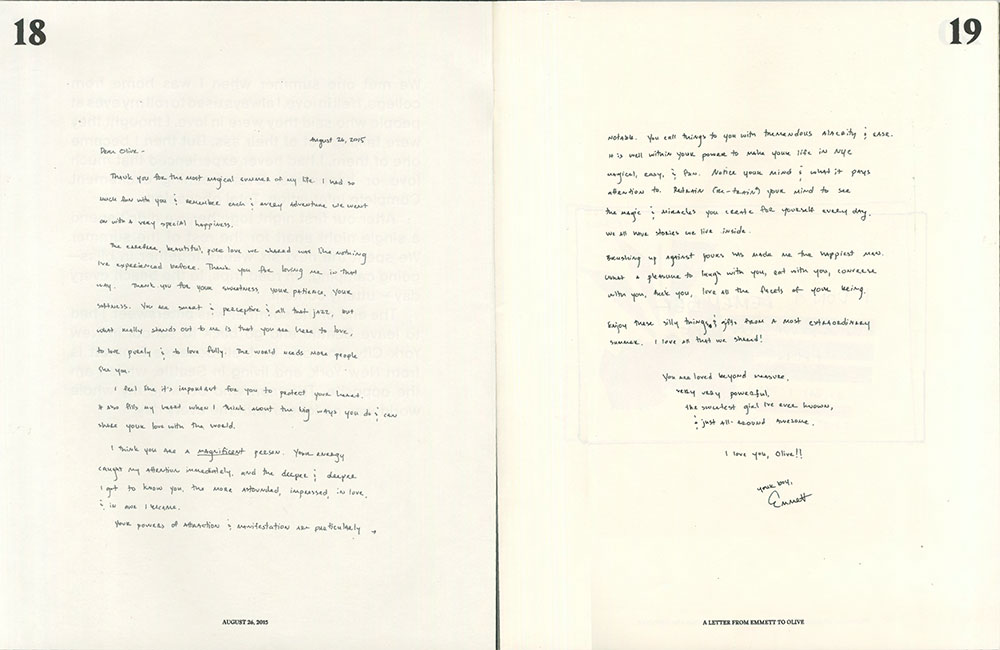 18
August 26, 2015
Dear Olive -
Thank you for the most magical summer of my life. I had so
much fun with you & remember each & every adventure we went
on with a very special happiness.
The carefree, beautiful, pure love we shared was like nothing
I've experienced before. Thank you for loving me in that
way. Thank you for your sweetness, your patience, your
softness. You are smart & perceptive & all that jazz, but
what really stands out to me is that you are here to love,
to love purely & to love fully. The world needs more people
like you.
I feel like it's important for you to protect your heart.
It also fills my heart when I think about the big ways you do & can
share your love with the world.
I think you are a magnificent person. Your energy
caught my attention immediately, and the deeper & deeper
I got to know you, the more astounded, impressed, in love,
& in awe I became.
Your powers of attraction & manifestation are particularly →
AUGUST 26, 2015
19
notable. You call things to you with tremendous alacrity & ease.
It is well within your power to make your life in NYC
magical, easy, & fun. Notice your mind & what it pays
attention to. Retrain (re-train?) your mind to see
the magic & miracles you create for yourself every day.
We all have stories we live inside.
Brushing up against yours has made me the happiest man.
What a pleasure to laugh with you, eat with you, converse
with you, fuck you, love all the facets of your being.
Enjoy these silly things & gifts from a most extraordinary
summer. I love all that we shared!
You are loved beyond measure,
very very powerful,
the sweetest girl I've ever known,
& just all-around awesome.
I love you, Olive!!
your boy,
Emmett
A LETTER FROM EMMETT TO OLIVE